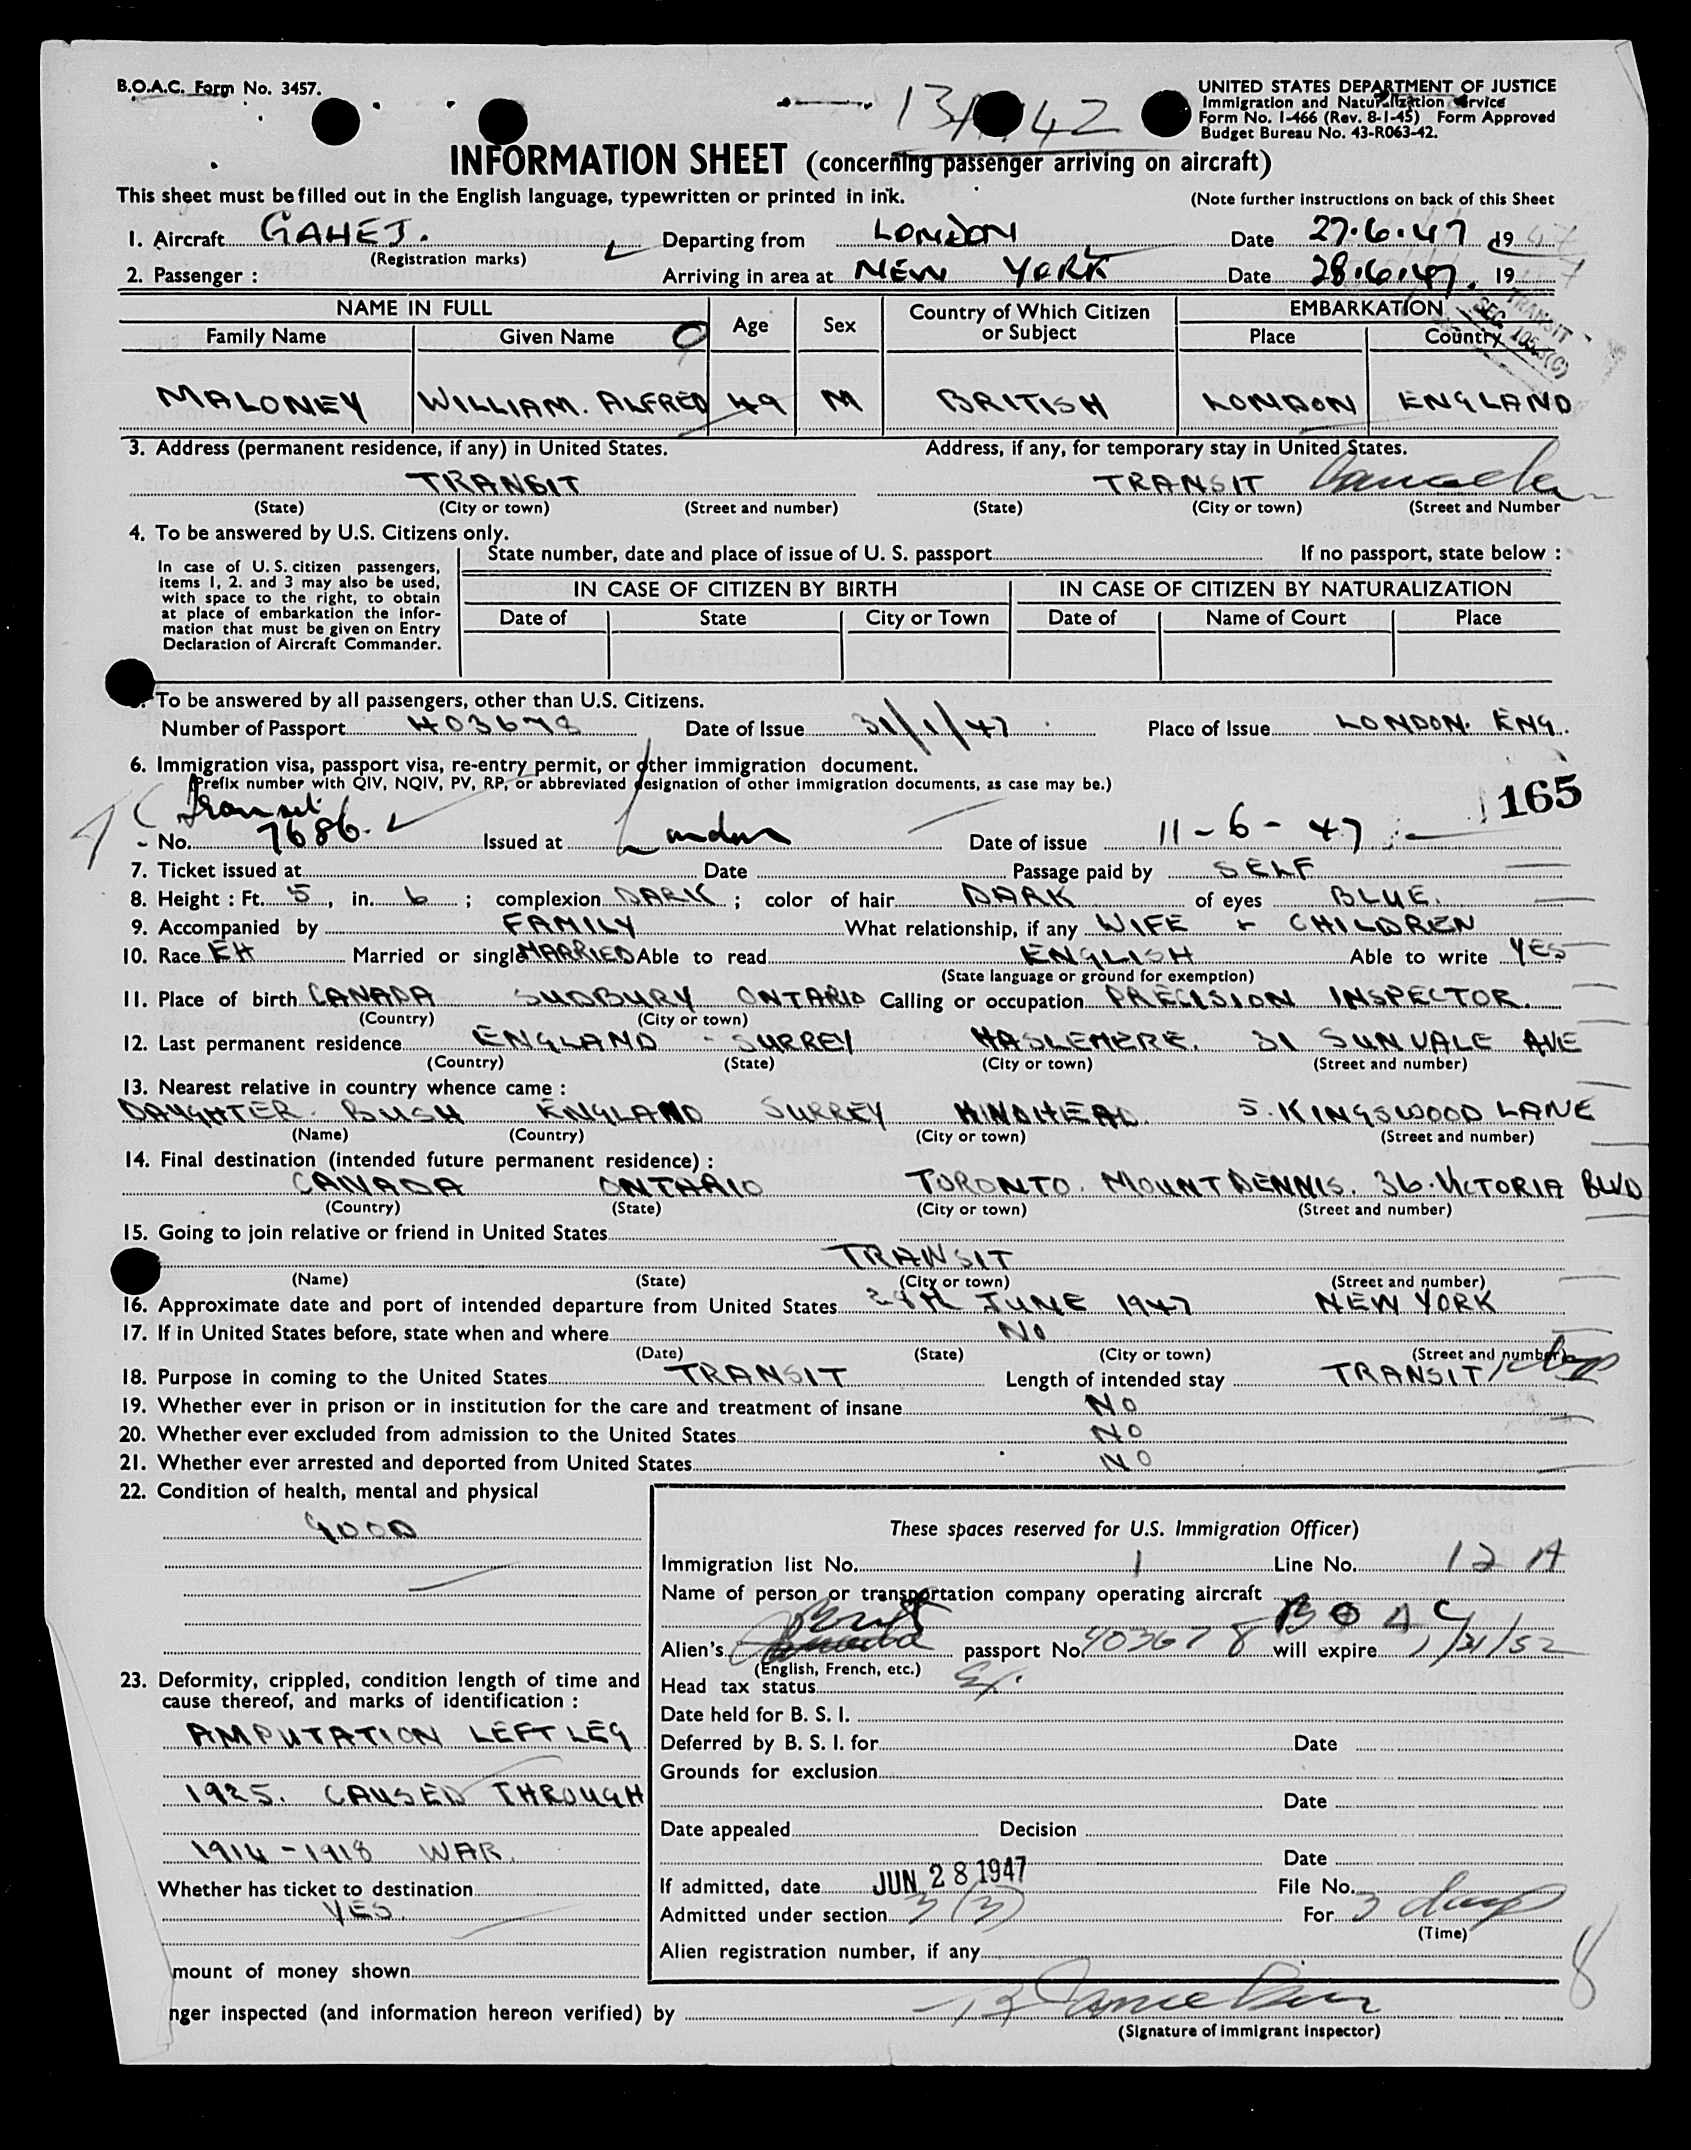 B.O.A.C. Form No. 3457.
UNITED STATES DEPARTMENT OF JUSTICE
Immigration and Naturalization Service
Form No. I-466 (Rev. 8-1-45) Form Approved
Budget Bureau No. 43-R063-42.
INFORMATION SHEET (concerning passenger arriving on aircraft)
This sheet must be filled out in the English language, typewritten or printed in ink.
(Note further instructions on back of this Sheet
1. Aircraft GAHEJ. Departing from LONDON Date 27.6.47 19
(Registration marks)
2. Passenger : Arriving in area at NEW YORK Date 28.6.47. 19
TRANSIT
SEC
NAME IN FULL Age Sex Country of Which Citizen or Subject EMBARKATION
Family Name Given Name Place Country
MALONEY WILLIAM. ALFRED 49 M BRITISH LONDON ENGLAND
3. Address (permanent residence, if any) in United States. Address, if any, for temporary stay in United States.
TRANSIT TRANSIT
(State) (City or town) (Street and number) (State) (City or town) (Street and Number
4. To be answered by U.S. Citizens only.
State number, date and place of issue of U. S. passport If no passport, state below :
In case of U. S. citizen passengers,
items 1, 2. and 3 may also be used,
with space to the right, to obtain
at place of embarkation the infor-
mation that must be given on Entry
Declaration of Aircraft Commander.
IN CASE OF CITIZEN BY BIRTH IN CASE OF CITIZEN BY NATURALIZATION
Date of State City or Town Date of Name of Court Place
To be answered by all passengers, other than U.S. Citizens.
Number of Passport 403678 Date of Issue 31/1/47 Place of Issue LONDON. ENG.
6. Immigration visa, passport visa, re-entry permit, or other immigration document.
(Prefix number with QIV, NQIV, PV, RP, or abbreviated designation of other immigration documents, as case may be.)
165
Transit
No. 7686. Issued at London Date of issue 11-6-47
7. Ticket issued at Date Passage paid by SELF
8. Height : Ft. 5, in. 6 ; complexion DARK ; color of hair DARK of eyes BLUE.
9. Accompanied by FAMILY What relationship, if any WIFE + CHILDREN
10. Race EH Married or single MARRIED Able to read ENGLISH Able to write YES
(State language or ground for exemption)
11. Place of birth CANADA SUDBURY ONTARIO Calling or occupation PRECISION INSPECTOR.
(Country) (City or town)
12. Last permanent residence ENGLAND - SURREY HASLEMERE. 31 SUNVALE AVE
(Country) (State) (City or town) (Street and number)
13. Nearest relative in country whence came :
DAUGHTER. BUSH ENGLAND SURREY HINDHEAD. 5. KINGSWOOD LANE
(Name) (Country) (City or town) (Street and number)
14. Final destination (intended future permanent residence) :
CANADA ONTARIO TORONTO. MOUNT DENNIS. 36. VICTORIA BLVD
(Country) (State) (City or town) (Street and number)
15. Going to join relative or friend in United States
TRANSIT
(Name) (State) (City or town) (Street and number)
16. Approximate date and port of intended departure from United States 28TH JUNE 1947 NEW YORK
17. If in United States before, state when and where No
(Date) (State) (City or town) (Street and number)
18. Purpose in coming to the United States TRANSIT Length of intended stay TRANSIT
19. Whether ever in prison or in institution for the care and treatment of insane No
20. Whether ever excluded from admission to the United States No
21. Whether ever arrested and deported from United States No
22. Condition of health, mental and physical
GOOD
23. Deformity, crippled, condition length of time and
cause thereof, and marks of identification :
AMPUTATION LEFT LEG
1925. CAUSED THROUGH
1914-1918 WAR.
Whether has ticket to destination
YES.
mount of money shown
These spaces reserved for U.S. Immigration Officer)
Immigration list No. 1 Line No. 12 A
Name of person or transportation company operating aircraft
BOAC
Alien's Brit passport No. 403678 will expire 1/31/52
(English, French, etc.)
Head tax status Ex.
Date held for B. S. I.
Deferred by B. S. I. for Date
Grounds for exclusion
Date
Date appealed Decision
Date
If admitted, date JUN 28 1947 File No.
Admitted under section 3 (3) For 3 days
(Time)
Alien registration number, if any
8
nger inspected (and information hereon verified) by
(Signature of Immigrant Inspector)